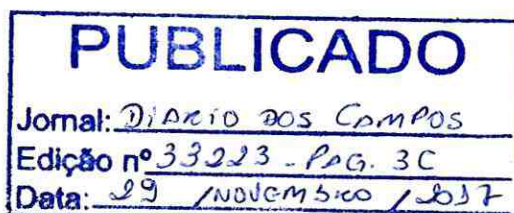 PUBLICADO
Jornal: DIARIO DOS CAMPOS
Edição nº 33223 - PAG. 3C
Data: 29 / NOVEMBRO / 2017